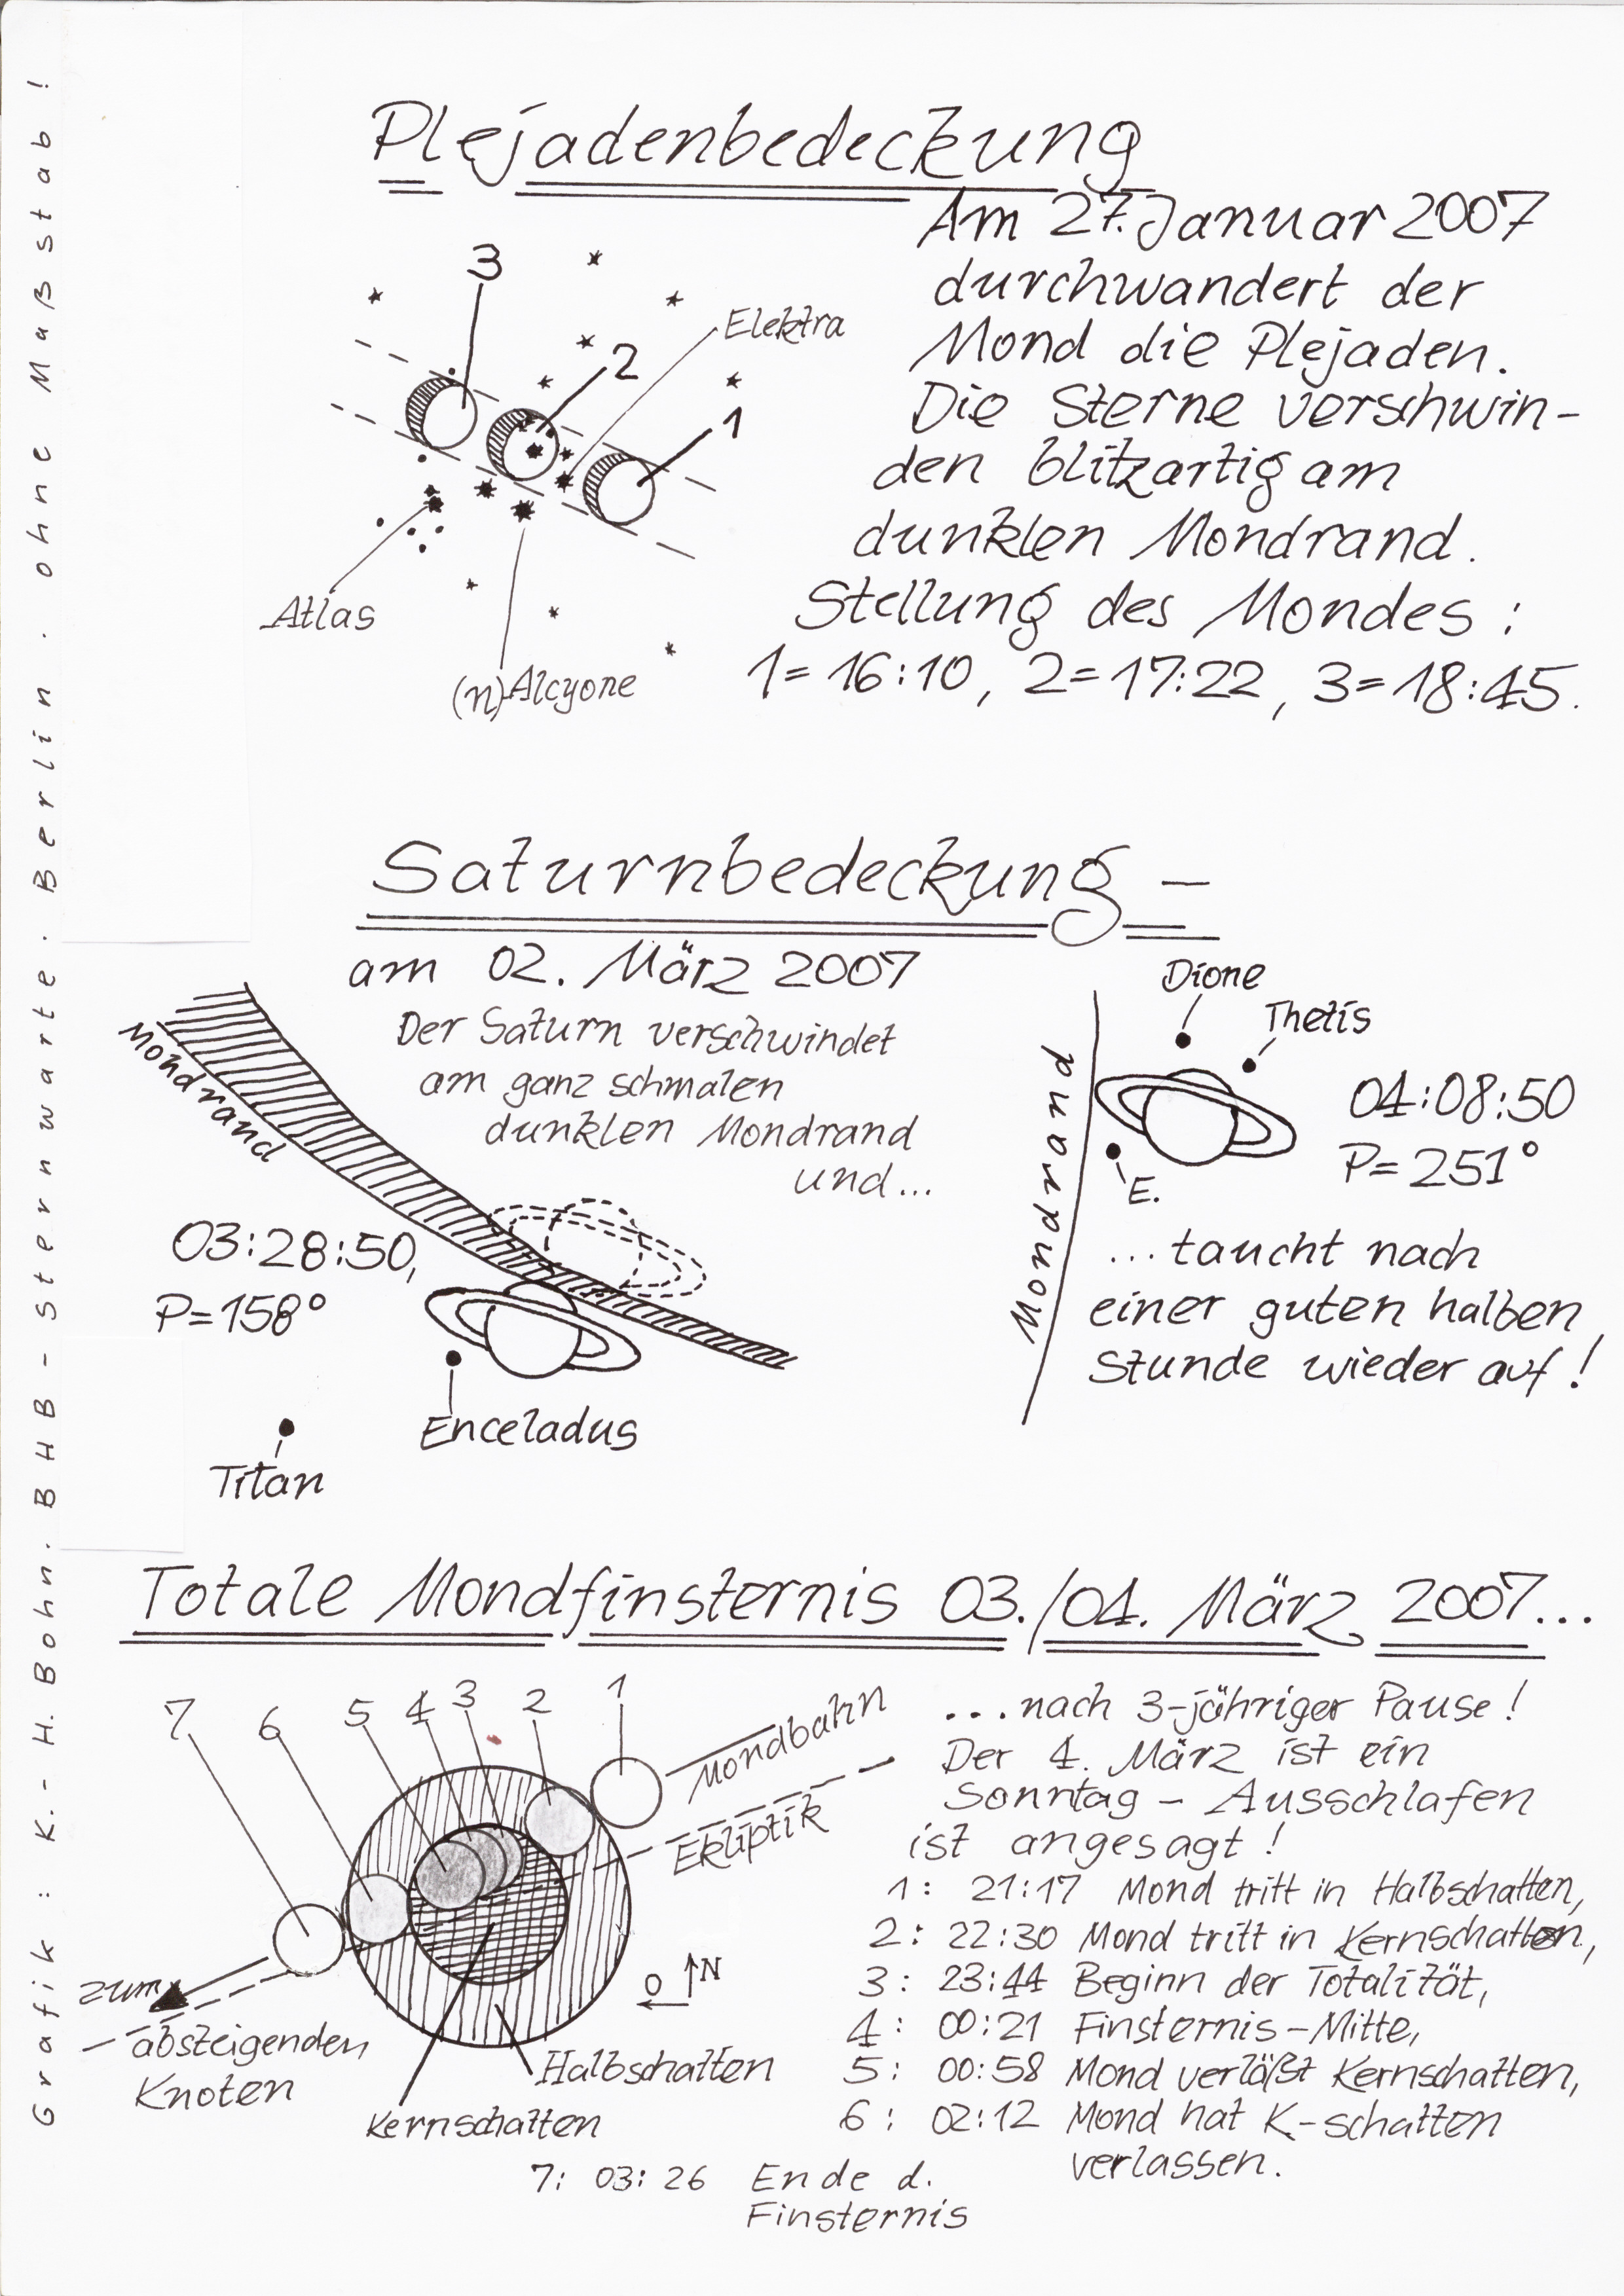 Plejadenbedeckung
Am 27. Januar 2007
durchwandert der
Mond die Plejaden.
Die Sterne verschwin-
den blitzartig am
dunklen Mondrand.
Stellung des Mondes :
1= 16:10, 2=17:22, 3=18:45.
3
2
1
Elektra
Atlas
(η) Alcyone
Saturnbedeckung –
am 02. März 2007
Der Saturn verschwindet
am ganz schmalen
dunklen Mondrand
und...
Mondrand
03:28:50,
P=158°
Enceladus
Titan
Dione
Thetis
Mondrand
E.
04:08:50
P=251°
...taucht nach
einer guten halben
Stunde wieder auf!
Totale Mondfinsternis 03./04. März 2007...
7 6 5 4 3 2 1
Mondbahn
Ekliptik
O N
zum
absteigenden
Knoten
Halbschatten
Kernschatten
...nach 3-jähriger Pause!
Der 4. März ist ein
Sonntag – Ausschlafen
ist angesagt!
1: 21:17 Mond tritt in Halbschatten,
2: 22:30 Mond tritt in Kernschatten,
3: 23:44 Beginn der Totalität,
4: 00:21 Finsternis-Mitte,
5: 00:58 Mond verläßt Kernschatten,
6: 02:12 Mond hat K-schatten
verlassen.
7: 03:26 Ende d.
Finsternis
Grafik: K.-H. Bohn. BHB-Sternwarte. Berlin. ohne Maßstab!